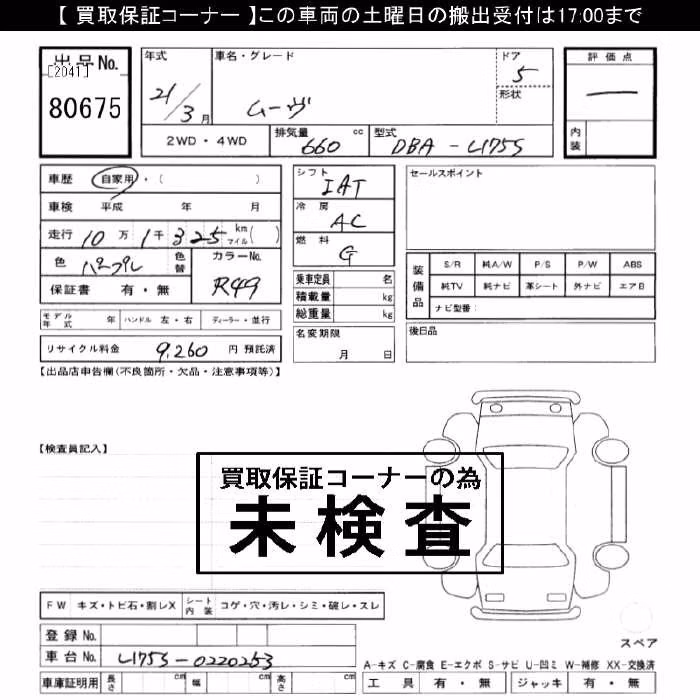 【 買取保証コーナー 】この車両の土曜日の搬出受付は17:00まで
出品No.
[2041]
80675
年式
21/3月
車名・グレード
ムーヴ
ドア
5
形状
評価点
内装
2WD・4WD
排気量
660 cc
型式
DBA-L175S
車歴 自家用・( )
車検 平成 年 月
走行 10万1千325 km マイル( )
色 パープル 色替
カラーNo.
R49
保証書 有・無
シフト
IAT
冷房
AC
燃料
G
乗車定員 名
積載量 kg
総重量 kg
名変期限
月 日
セールスポイント
装備品
S/R 純A/W P/S P/W ABS
純TV 純ナビ 革シート 外ナビ エアB
ナビ型番:
後日品
モデル年式 年 ハンドル 左・右 ディーラー・並行
リサイクル料金 9,260 円 預託済
【出品店申告欄(不良箇所・欠品・注意事項等)】
【検査員記入】
買取保証コーナーの為
未検査
FW キズ・トビ石・割レX シート内装 コゲ・穴・汚レ・シミ・破レ・スレ
登録No.
車台No. L175S-0220253
車庫証明用 長さ cm 幅 cm 高さ cm
スペア
A-キズ C-腐食 E-エクボ S-サビ U-凹ミ W-補修 XX-交換済
工具 有・無 ジャッキ 有・無